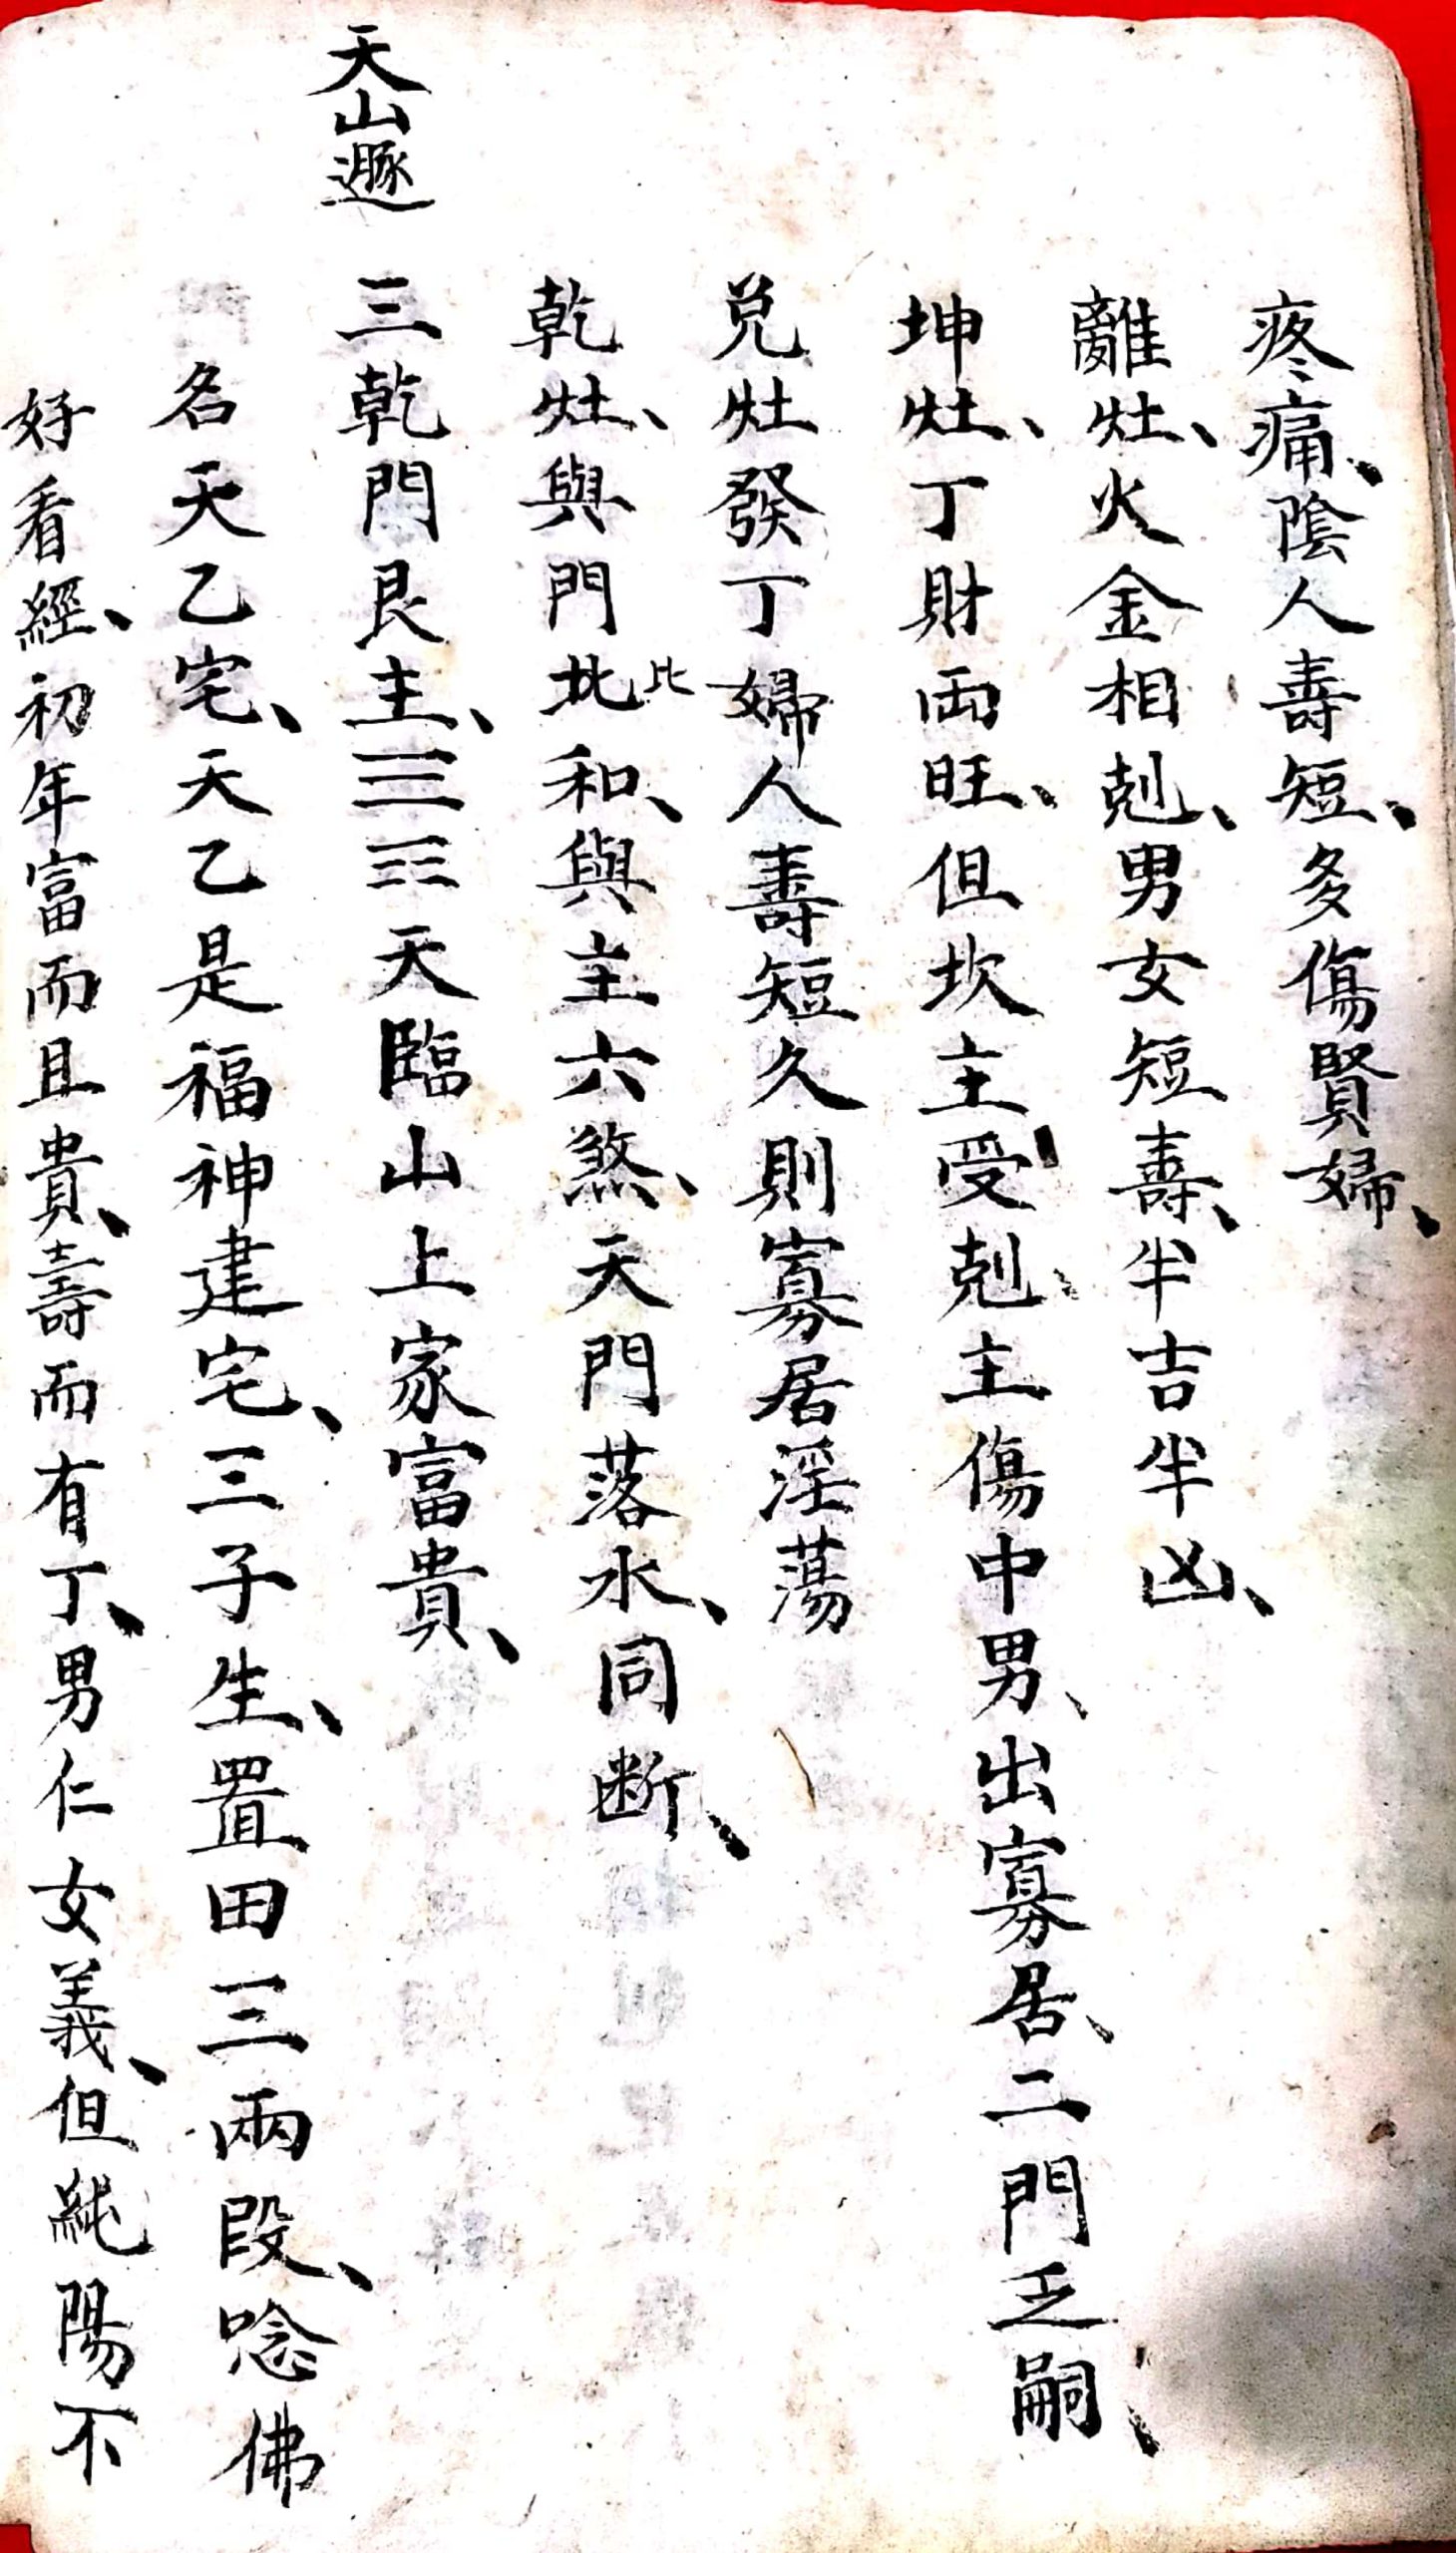 疼痛、陰人壽短、多傷賢婦、
離灶、火金相剋、男女短壽、半吉半凶、
坤灶、丁財両旺、但坎主受剋、主傷中男、出寡居、二門乏嗣、
兌灶發丁婦人壽短久則寡居淫蕩
乾灶、與門批和、與主六煞、天門落水、同断、
比
天山遯
三乾門艮主、☰☶天臨山上家富貴、
名天乙宅、天乙是福神建宅、三子生、置田三兩段、唸佛
好看經、初年富而且貴、壽而有丁、男仁女義、但純陽不